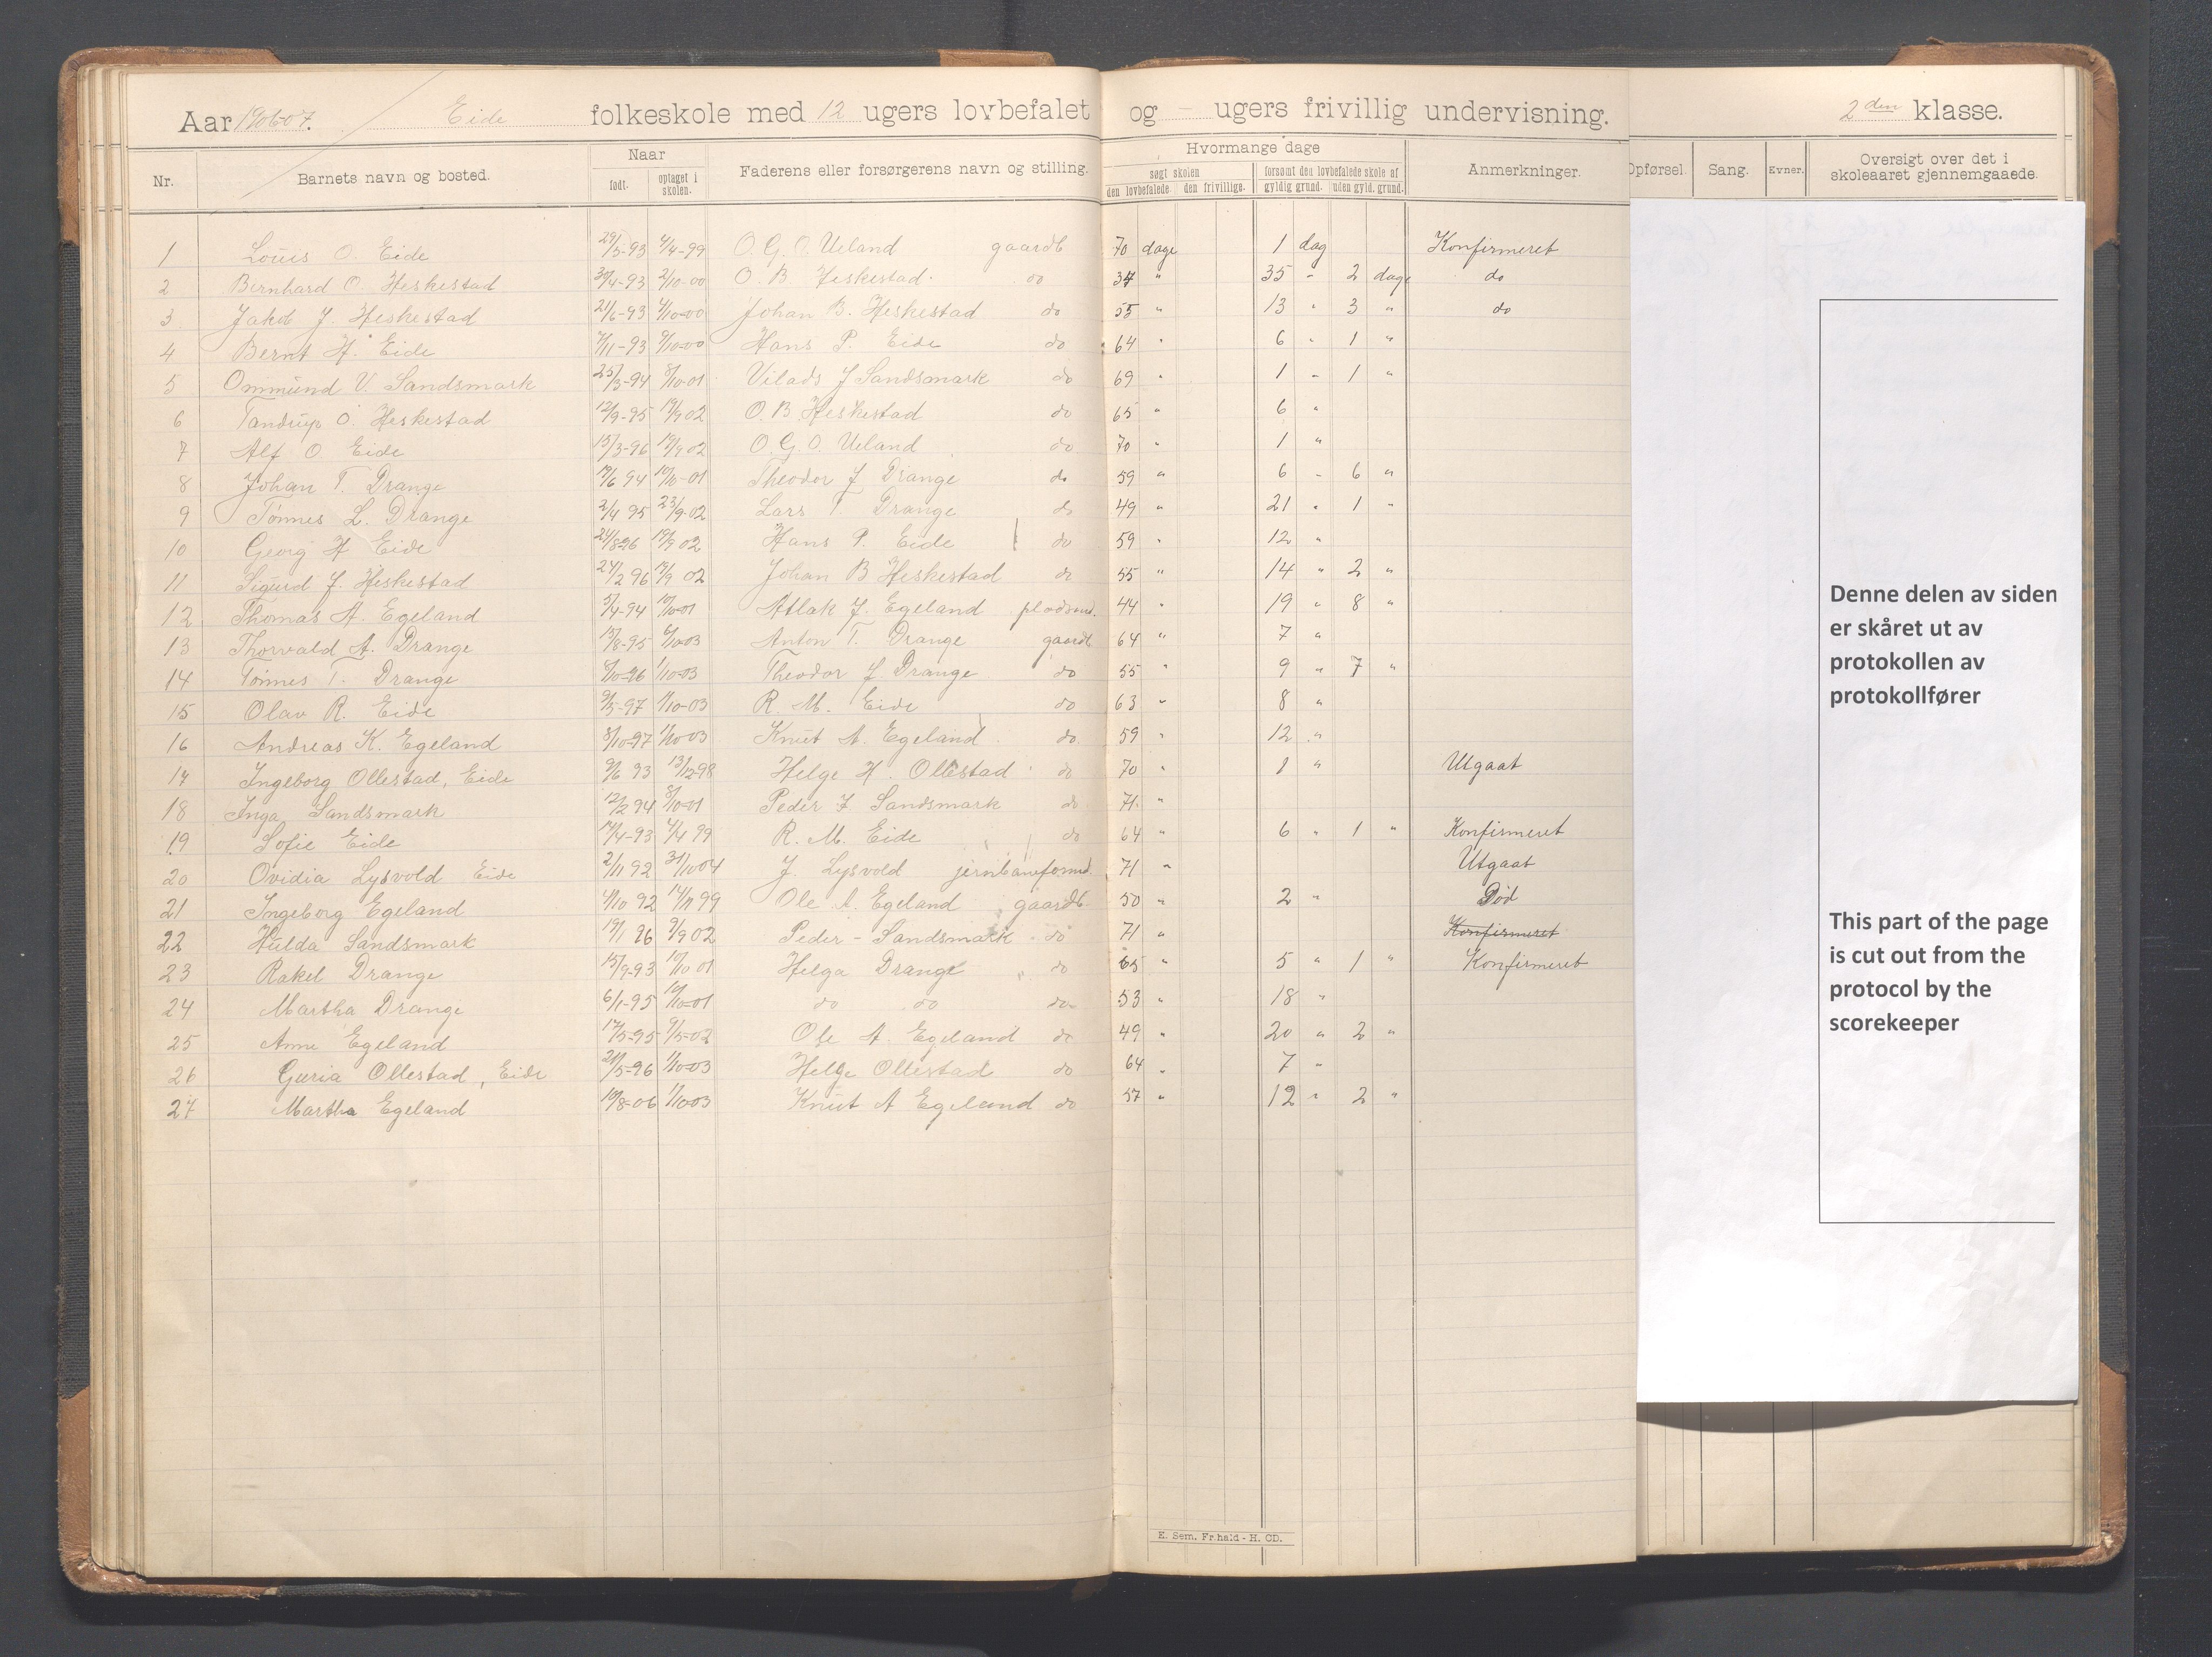 Aar 1906-07. Eide folkeskole med 12 ugers lovbefalet og - ugers frivillig undervisning. 2den klasse.
Nr. Barnets navn og bosted. Naar født. optaget i skolen. Faderens eller forsørgerens navn og stilling. Hvormange dage søgt skolen den lovbefalede. den frivillige. forsømt den lovbefalede skole af gyldig grund. uden gyld. grund. Anmerkninger. Opførsel. Sang. Evner. Oversigt over det i skoleaaret gjennemgaaede.
1 Louis O. Eide 29/3-93 4/4-99 O. G. O. Ueland gaardb 70 dage 1 dag Konfirmeret
2 Bernhard O. Heskestad 30/4-93 2/10-00 O. B. Heskestad do 37 " 35 " 2 dage do
3 Jakob J. Heskestad 21/6-93 4/10-00 Johan B. Heskestad do 55 " 13 " 3 " do
4 Bernt H. Eide 7/11-93 9/10-00 Hans P. Eide do 64 " 6 " 1 "
5 Ommund V. Sandsmark 25/3-94 8/10-01 Vilads J Sandsmark do 69 " 1 " 1 "
6 Tandrup O. Heskestad 12/9-95 19/9 02 O. B. Heskestad do 65 " 6 "
7 Alf O Eide 15/3-96 19/9 02 O. G. O. Ueland do 70 " 1 "
8 Johan T. Drange 19/6 94 10/10-01 Theodor J Drange do 59 " 6 " 6 "
9 Tønnes L. Drange 2/4 95 23/9-02 Lars T. Drange do 49 " 21 " 1 "
10 Georg H Eide 24/8-96 19/9 02 Hans P. Eide do 59 " 12 "
11 Sigurd J. Heskestad 24/2 96 19/9 02 Johan B Heskestad do 55 " 14 " 2 "
12 Thomas A. Egeland 5/4-94 10/10-01 Atlak J. Egeland pladsmd. 44 " 19 " 8 "
13 Thorvald A. Drange 15/8-95 6/10-03 Anton T. Drange gaardb 64 " 7 "
14 Tønnes T. Drange 8/10-96 1/10-03 Theodor J Drange do 55 " 9 " 7 "
15 Olav R. Eide 9/5-97 1/10-03 R. M. Eide do 63 " 8 "
16 Andreas K. Egeland 8/10-97 1/10-03 Knut A. Egeland do. 59 " 12 "
17 Ingeborg Ollestad, Eide 9/6 93 13/12-98 Helge H. Ollestad do 70 " 1 " Utgaat
18 Inga Sandsmark 12/2 94 8/10-01 Peder J Sandsmark do 71 "
19 Sofie Eide 14/4-93 4/4 99 R. M. Eide do 64 " 6 " 1 " Konfirmeret
20 Ovidia Lysvold Eide 2/11 92 31/10 04 J. Lysvold jernbaneformd. 71 " Utgaat
21 Ingeborg Egeland 4/10 92 14/11 99 Ole A. Egeland gaardb 50 " 2 " Død
22 Hulda Sandsmark 19/1 96 9/9 02 Peder - Sandsmark do 71 " Konfirmeret
23 Rakel Drange 15/9-93 10/10 01 Helga Drange " do 65 " 5 " 1 " Konfirmeret
24 Martha Drange 6/1-95 10/10-01 do do do 53 " 18 "
25 Anne Egeland 17/5-95 9/5-02 Ole A. Egeland do 49 " 20 " 2 "
26 Guria Ollestad, Eide 21/5-96 1/10-03 Helge Ollestad do 64 " 7 "
27 Martha Egeland 10/8-06 1/10-03 Knut A Egeland do 57 " 12 " 2 "
E. Sem. Fr.hald - H. OD.
Denne delen av siden
er skåret ut av
protokollen av
protokollfører
This part of the page
is cut out from the
protocol by the
scorekeeper